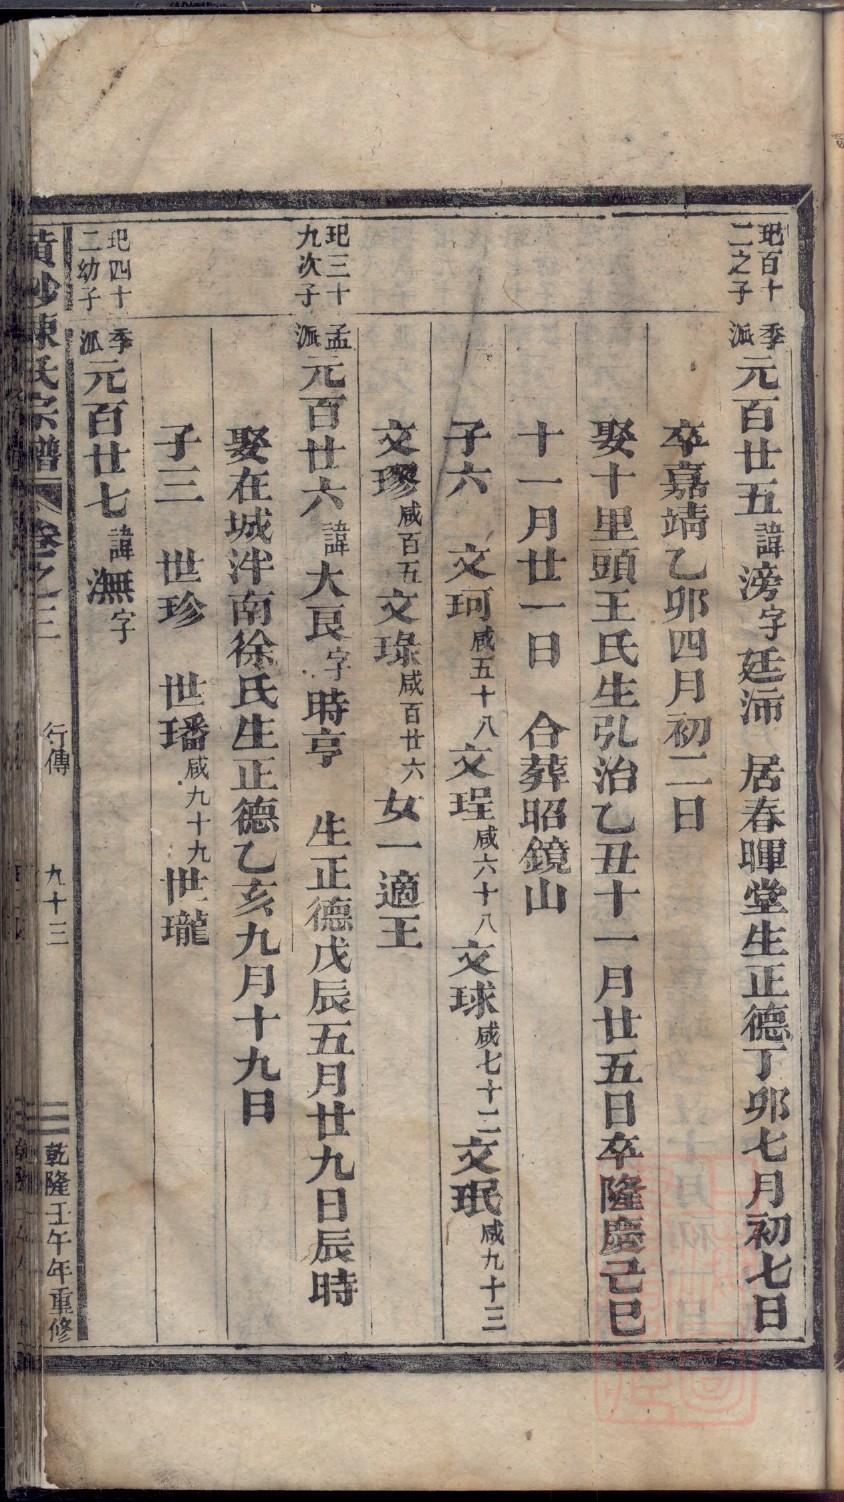 玘百十
二之子
季派元百廿五諱滂字廷沛 居春暉堂生正德丁卯七月初七日
卒嘉靖乙卯四月初二日
娶十里頭王氏生弘治乙丑十一月廿五日卒隆慶己巳
十一月廿一日 合葬昭鏡山
子六 文珂咸五十八文珵咸六十八文球咸七十二文珉咸九十三
文璆咸百五文琭咸百廿六女一適王
玘三十
九次子
孟派元百廿六諱大良字時亨 生正德戊辰五月廿九日辰時
娶在城泮南徐氏生正德乙亥九月十九日
子三 世珍 世璠咸九十九世瓏
玘四十
二幼子
季派元百廿七諱潕字
陳氏宗譜 卷之三 行傳 九十三 乾隆壬午年重修